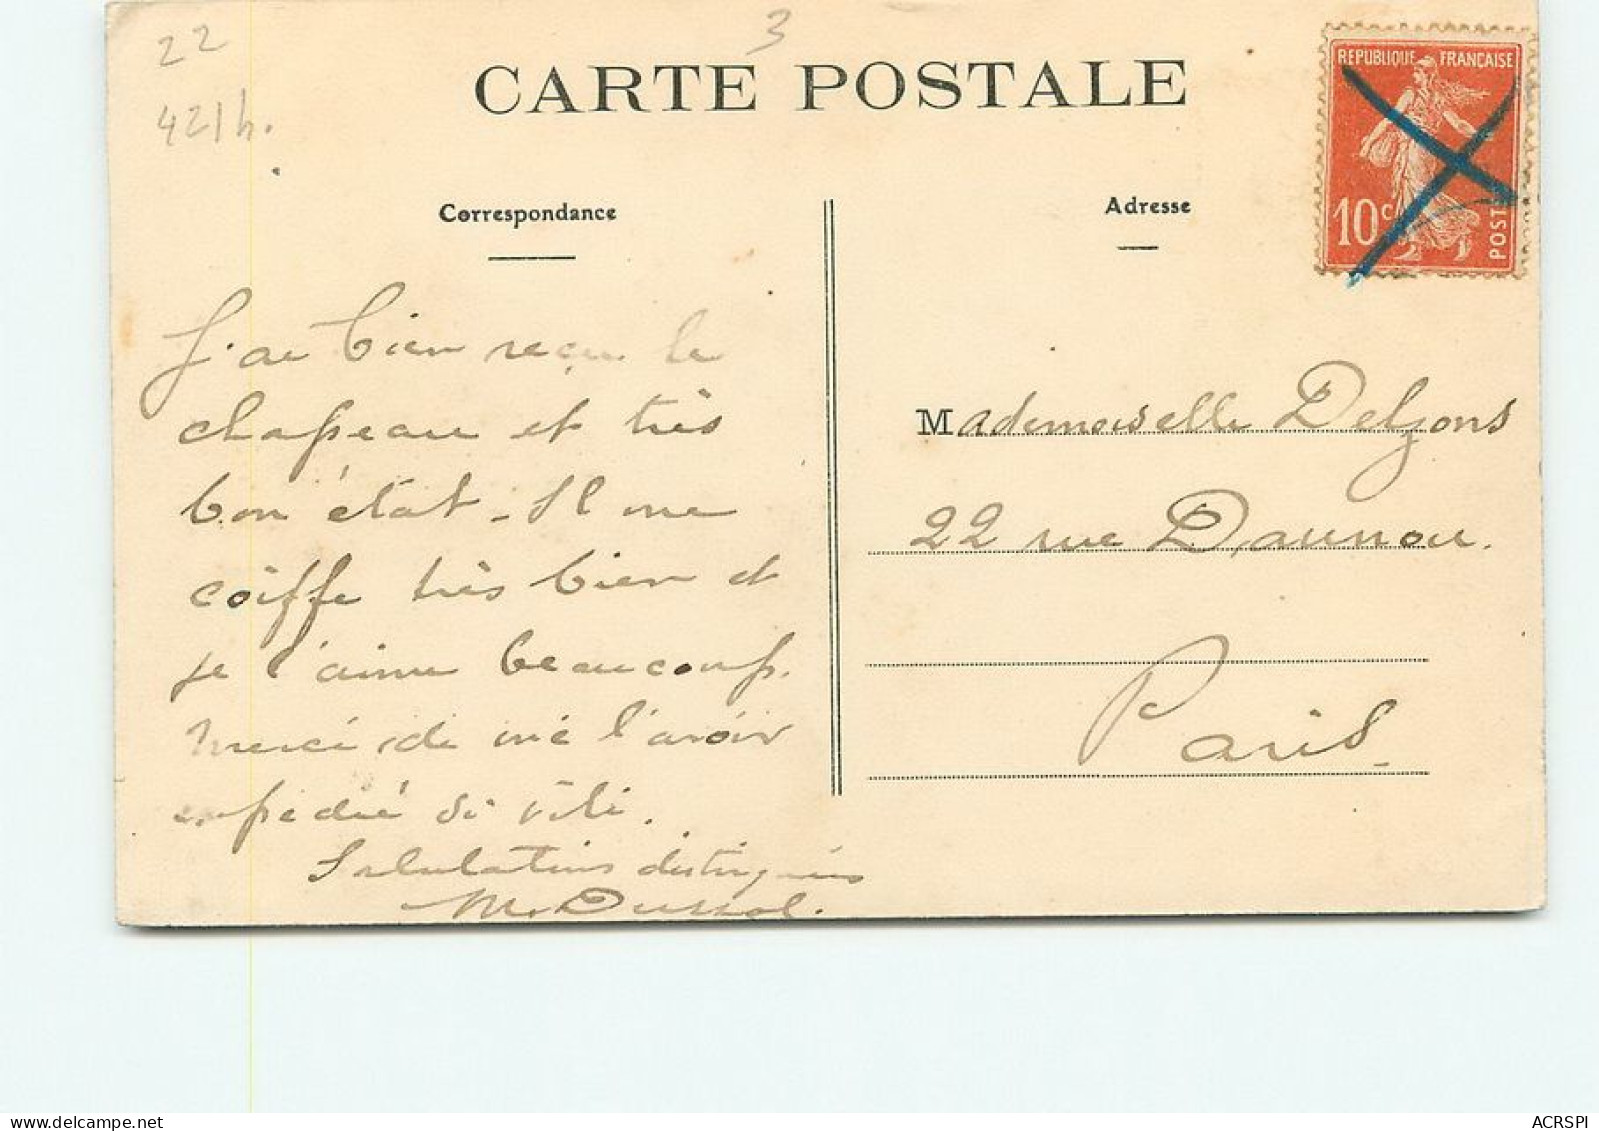 22
3
421h.
CARTE POSTALE
REPUBLIQUE FRANÇAISE
10c
POSTES
Correspondance
Adresse
J'ai bien reçu le
chapeau et très
bon état. Il me
coiffe très bien et
je l'aime beaucoup.
Merci de me l'avoir
expédié si vite.
Salutations distinguées
M. Dussol.
Mademoiselle Delzons
22 rue Daunou.
Paris.
ACRSPI